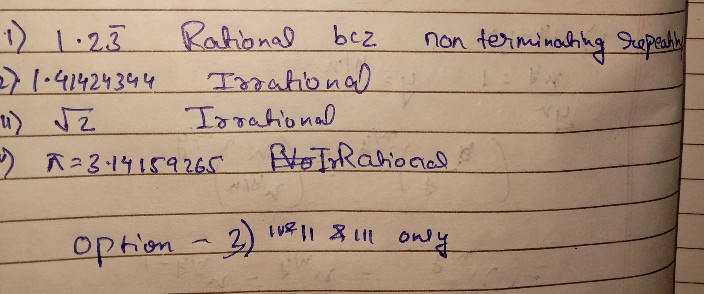 1) 1.23̅ Rational bcz non terminating repeatin
2) 1.41424344 Irrational
11) √2 Irrational
) π=3.14159265 IrRational
option - 3) 11 & 111 only